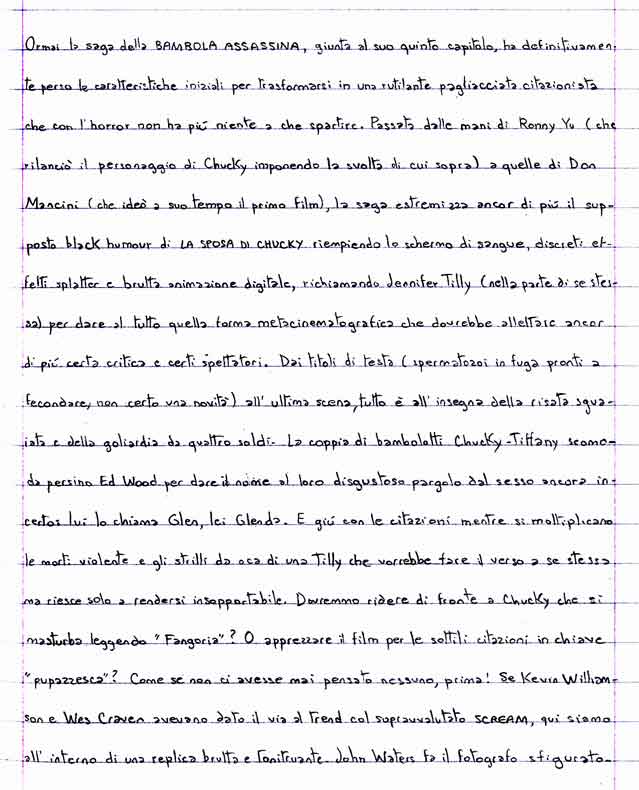 Ormai la saga della BAMBOLA ASSASSINA, giunta al suo quinto capitolo, ha definitivamen-
te perso le caratteristiche iniziali per trasformarsi in una rutilante pagliacciata citazionista
che con l'horror non ha più niente a che spartire. Passata dalle mani di Ronny Yu (che
rilanciò il personaggio di Chucky imponendo la svolta di cui sopra) a quelle di Don
Mancini (che ideò a suo tempo il primo film), la saga estremizza ancor di più il sup-
posto black humour di LA SPOSA DI CHUCKY riempiendo lo schermo di sangue, discreti ef-
fetti splatter e brutta animazione digitale, richiamando Jennifer Tilly (nella parte di se stes-
sa) per dare al tutto quella forma metacinematografica che dovrebbe allettare ancor
di più certa critica e certi spettatori. Dai titoli di testa (spermatozoi in fuga pronti a
fecondare, non certo una novità) all'ultima scena, tutto è all'insegna della risata sgua-
iata e della goliardia da quattro soldi. La coppia di bambolotti Chucky-Tiffany scomo-
da persino Ed Wood per dare il nome al loro disgustoso pargolo dal sesso ancora in-
certo: lui lo chiama Glen, lei Glenda. E giù con le citazioni mentre si moltiplicano
le morti violente e gli strilli da oca di una Tilly che vorrebbe fare il verso a se stessa
ma riesce solo a rendersi insopportabile. Dovremmo ridere di fronte a Chucky che si
masturba leggendo "Fangoria"? O apprezzare il film per le sottili citazioni in chiave
"pupazzesca"? Come se non ci avesse mai pensato nessuno, prima! Se Kevin William-
son e Wes Craven avevano dato il via al trend col sopravvalutato SCREAM, qui siamo
all'interno di una replica brutta e tonitruante. John Waters fa il fotografo sfigurato.